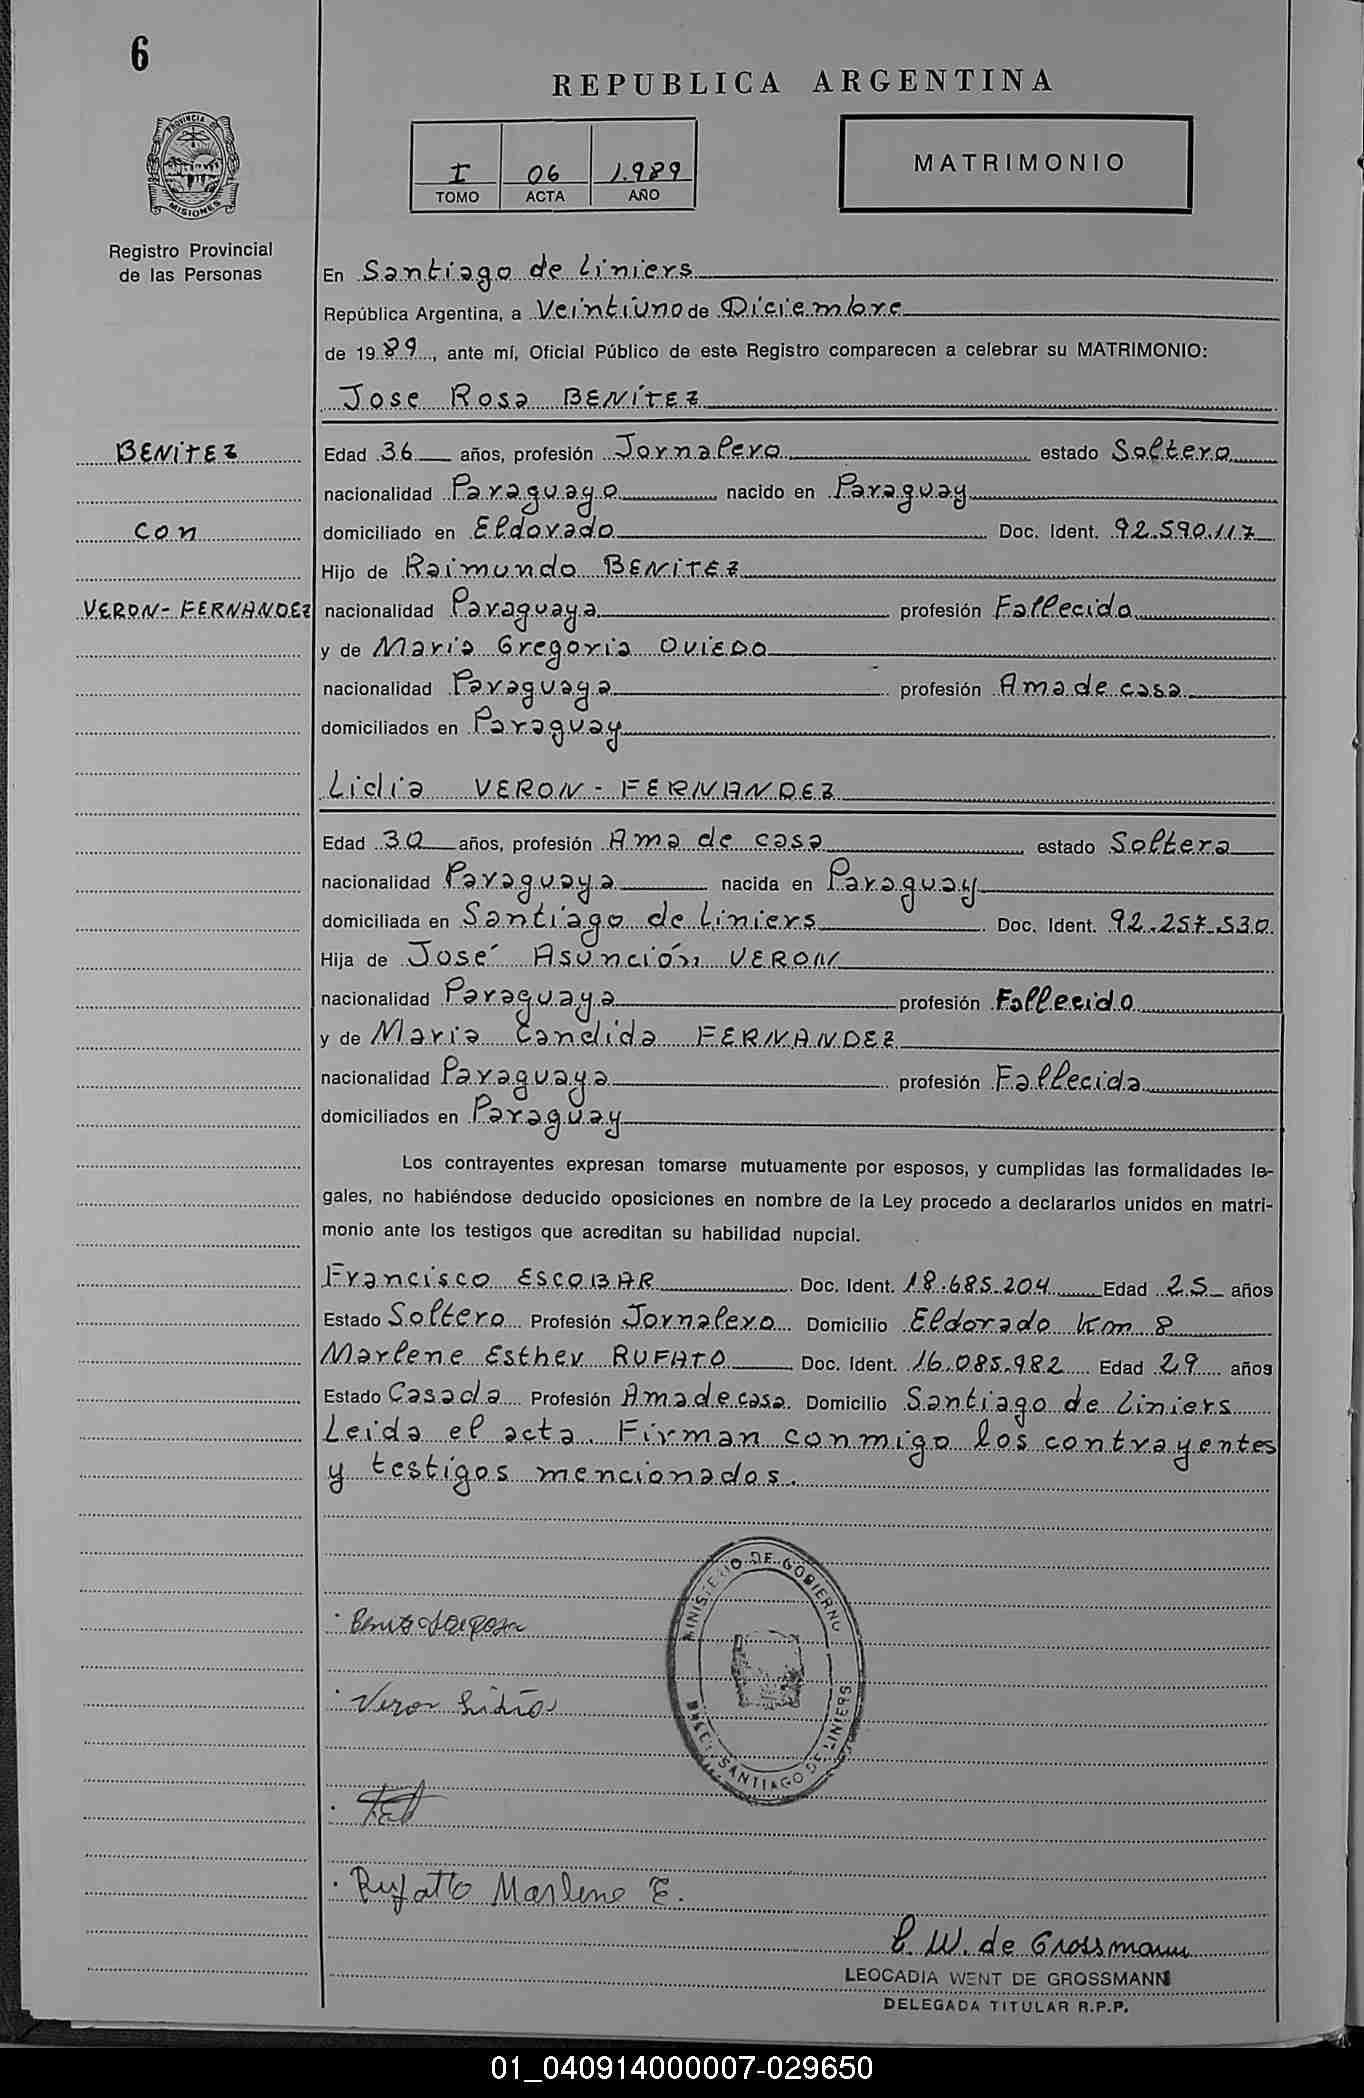 6
REPUBLICA ARGENTINA
PROVINCIA DE
MISIONES
I 06 1.989
TOMO ACTA AÑO
MATRIMONIO
Registro Provincial
de las Personas
En Santiago de Liniers
República Argentina, a Veintiuno de Diciembre
de 1989, ante mí, Oficial Público de este Registro comparecen a celebrar su MATRIMONIO:
Jose Rosa BENÍTEZ
BENITEZ
con
VERON-FERNANDEZ
Edad 36 años, profesión Jornalero estado Soltero
nacionalidad Paraguayo nacido en Paraguay
domiciliado en Eldorado Doc. Ident. 92.590.117
Hijo de Raimundo BENITEZ
nacionalidad Paraguaya profesión Fallecido
y de Maria Gregoria OVIEDO
nacionalidad Paraguaya profesión Ama de casa
domiciliados en Paraguay
Lidia VERON-FERNANDEZ
Edad 30 años, profesión Ama de casa estado Soltera
nacionalidad Paraguaya nacida en Paraguay
domiciliada en Santiago de Liniers Doc. Ident. 92.257.530
Hija de José Asunción VERON
nacionalidad Paraguaya profesión Fallecido
y de Maria Candida FERNANDEZ
nacionalidad Paraguaya profesión Fallecida
domiciliados en Paraguay
Los contrayentes expresan tomarse mutuamente por esposos, y cumplidas las formalidades le-
gales, no habiéndose deducido oposiciones en nombre de la Ley procedo a declararlos unidos en matri-
monio ante los testigos que acreditan su habilidad nupcial.
Francisco ESCOBAR Doc. Ident. 18.685.204 Edad 25 años
Estado Soltero Profesión Jornalero Domicilio Eldorado Km 8
Marlene Esther RUFATO Doc. Ident. 16.085.982 Edad 29 años
Estado Casada Profesión Ama de casa Domicilio Santiago de Liniers
Leida el acta. Firman conmigo los contrayentes
y testigos mencionados.
MINISTERIO DE GOBIERNO
SANTIAGO DE LINIERS
Veron Lidia
Rufatto Marlene E.
L. W. de Grossmann
LEOCADIA WENT DE GROSSMANN
DELEGADA TITULAR R.P.P.
01_040914000007-029650